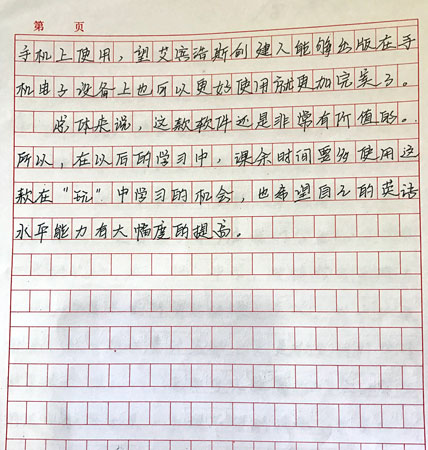 第 页
手机上使用，望艾宾浩斯创建人能够出版在手
机电子设备上也可以更好使用就更加完美了。
总体来说，这款软件还是非常有价值的。
所以，在以后的学习中，课余时间要多使用这
款在"玩"中学习的机会，也希望自己的英语
水平能力有大幅度的提高。